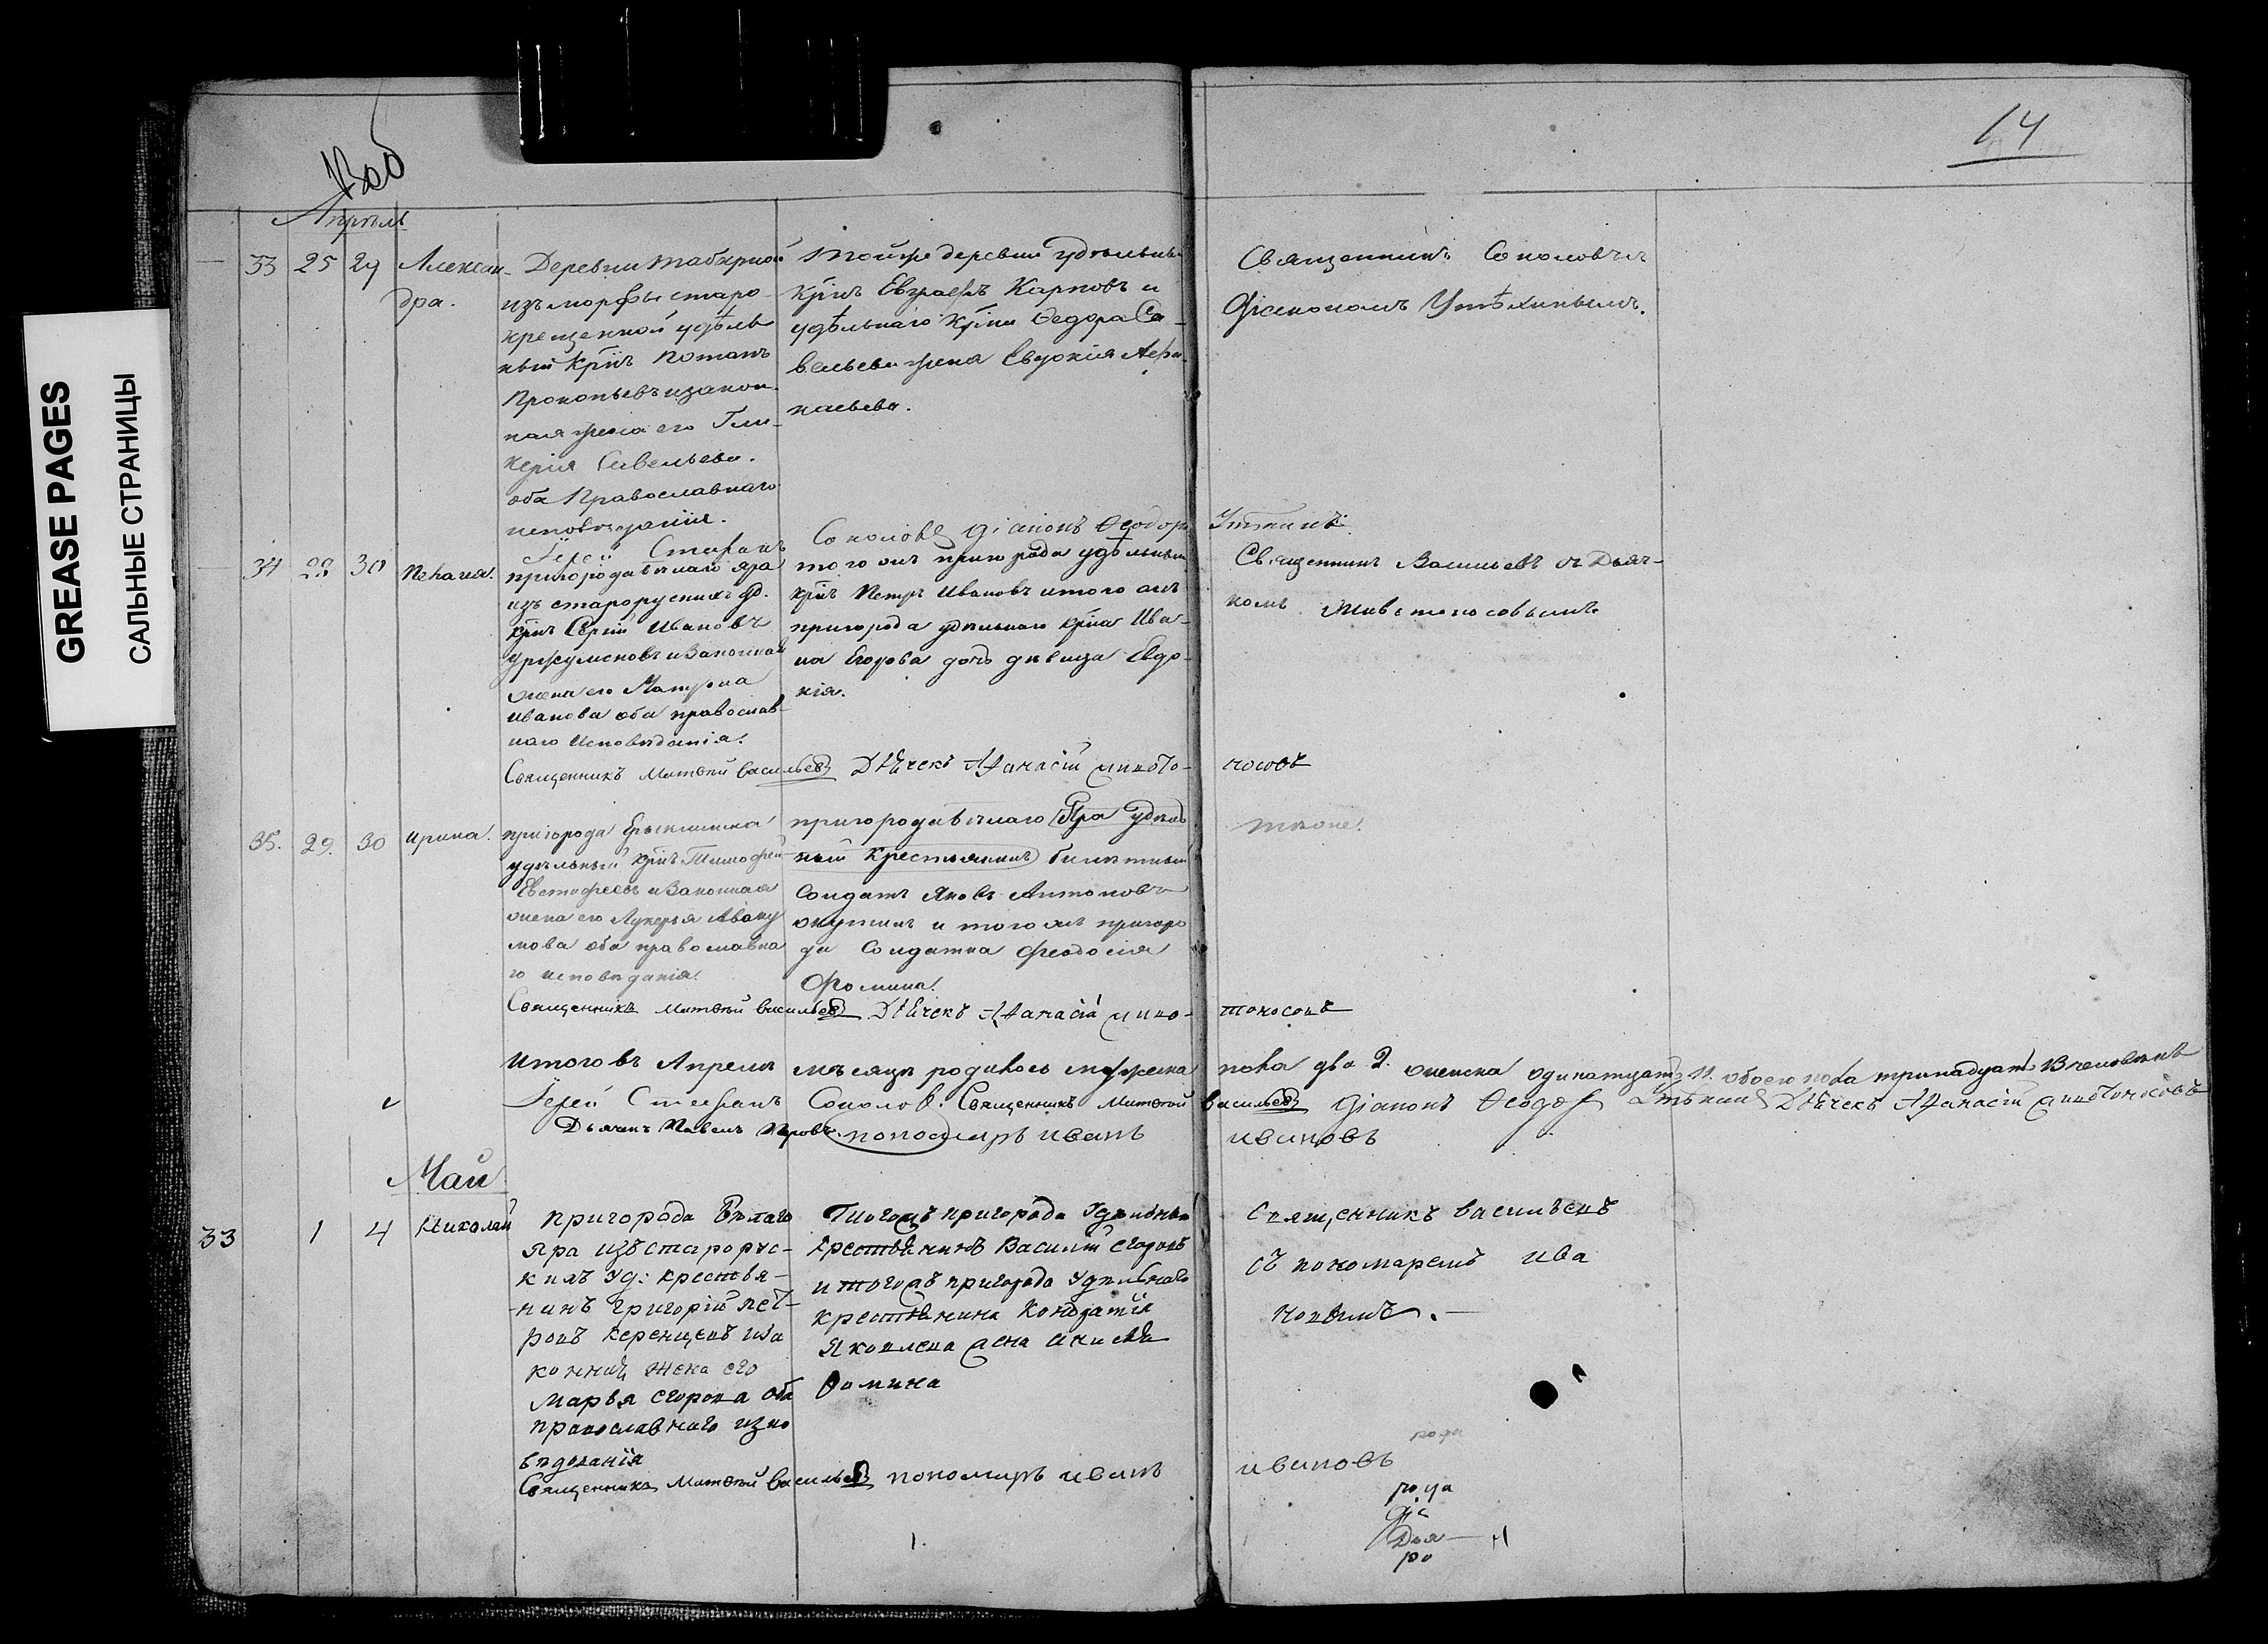 GREASE PAGES
САЛЬНЫЕ СТРАНИЦЫ
14
Апрѣль
33 25 27 Алексан-
дра.
Деревни
изъ старо-
крещенной удѣль
ный Кр҃інъ Потапъ
Прокопьевъ изакон-
ная жена его Гли-
керія Савельева.
оба Православнаго
исповѣданія.
Тойже деревни удѣльный
Кр҃інъ Карповъ и
удѣльнаго Кр҃іна Ѳедора Са-
вельева жена Евдокія Афа-
насьева.
Священникъ Соколовъ съ
Діакономъ Утѣхинымъ.
Іерей Стефанъ Соколовъ Діаконъ Ѳеодоръ
34 28 30 Пелагея.
пригорода бѣлаго яра
изъ старорускихъ уд.
кр҃інъ Сергій Ивановъ
Уржумсковъ и Законная
жена его Матрона
Иванова оба православ-
наго Исповѣданія.
того жъ пригорода удѣльный
кр҃інъ Петръ Ивановъ и того жъ
пригорода удѣльнаго кр҃іна Ива-
на Егорова дочь дѣвица Евдо-
кія.
Священникъ Васильевъ съ Дьяч-
комъ Животоносовымъ
Священникъ Матѳей Васильевъ Дьячекъ Афанасій Живото- носовъ
35. 29. 30 Ирина.
пригорода Ерыклинска
удѣльный кр҃інъ Тимофей
Евстафеевъ и Законная
жена его Лукерья Аваку
мова оба православна
го исповѣданія.
пригорода бѣлаго Яра удѣль
ный Крестьянинъ билетный
Солдатъ Яковъ Антоновъ
и того жъ пригоро
да Солдатка Феодосія
Фомина.
тоже.
Священникъ Матѳей Васильевъ Дьячекъ Афанасій Живо- тоносовъ
Итого въ Апрелѣ мѣсяцѣ родилось мужеска пола два 2. женска одинатцать 11. обоего пола тринадцать 13 человѣкъ
Іерей Стефанъ Соколов. Священникъ Матѳей Васильевъ Діаконъ Ѳеодоръ Утѣхинъ Дьячекъ Афанасій Животоносовъ
Дьячекъ Павелъ пономарь иванъ ивановъ
Май
33 1 4 Николай
пригорода Бѣлаго
Яра изъ старорус-
кихъ уд: крестья-
нинъ Григорій пет-
ровъ Керенцевъ иза
конная жена его
Марья егорова оба
православнаго испо
вѣданія
Тогожъ пригорода Удѣльный
крестьянинъ Василій егоровъ
и тогожъ пригорода Удѣльнаго
крестьянина Кондратія
Яковлева жена анисья
Ѳомина
Священникъ васильевъ
съ пономаремъ ива
новымъ.
Священникъ Матѳей Васильевъ пономарь иванъ ивановъ